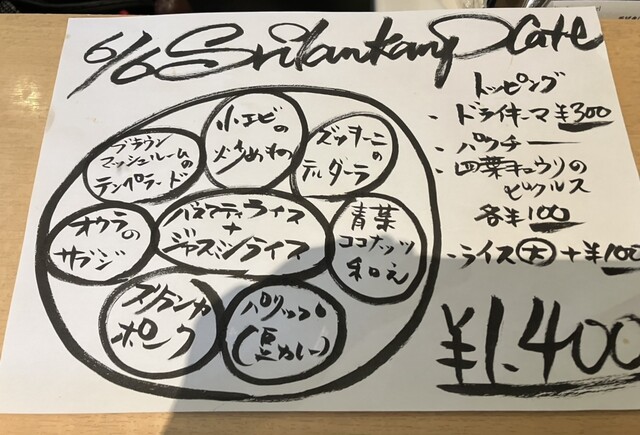 6/6 Srilankan Plate
小エビの
炒めもの
ブラウン
マッシュルームの
テンペラード
ズッキーニの
テルダーラ
オクラの
サブジ
バスマティライス
+
ジャスミンライス
青菜
ココナッツ
和え
スリランカ
ポーク
パリップ
(豆カレー)
トッピング
- ドライキーマ ¥300
- パクチー
- 四葉キュウリの
ピクルス
各半100
- ライス大 +¥100
¥1.400